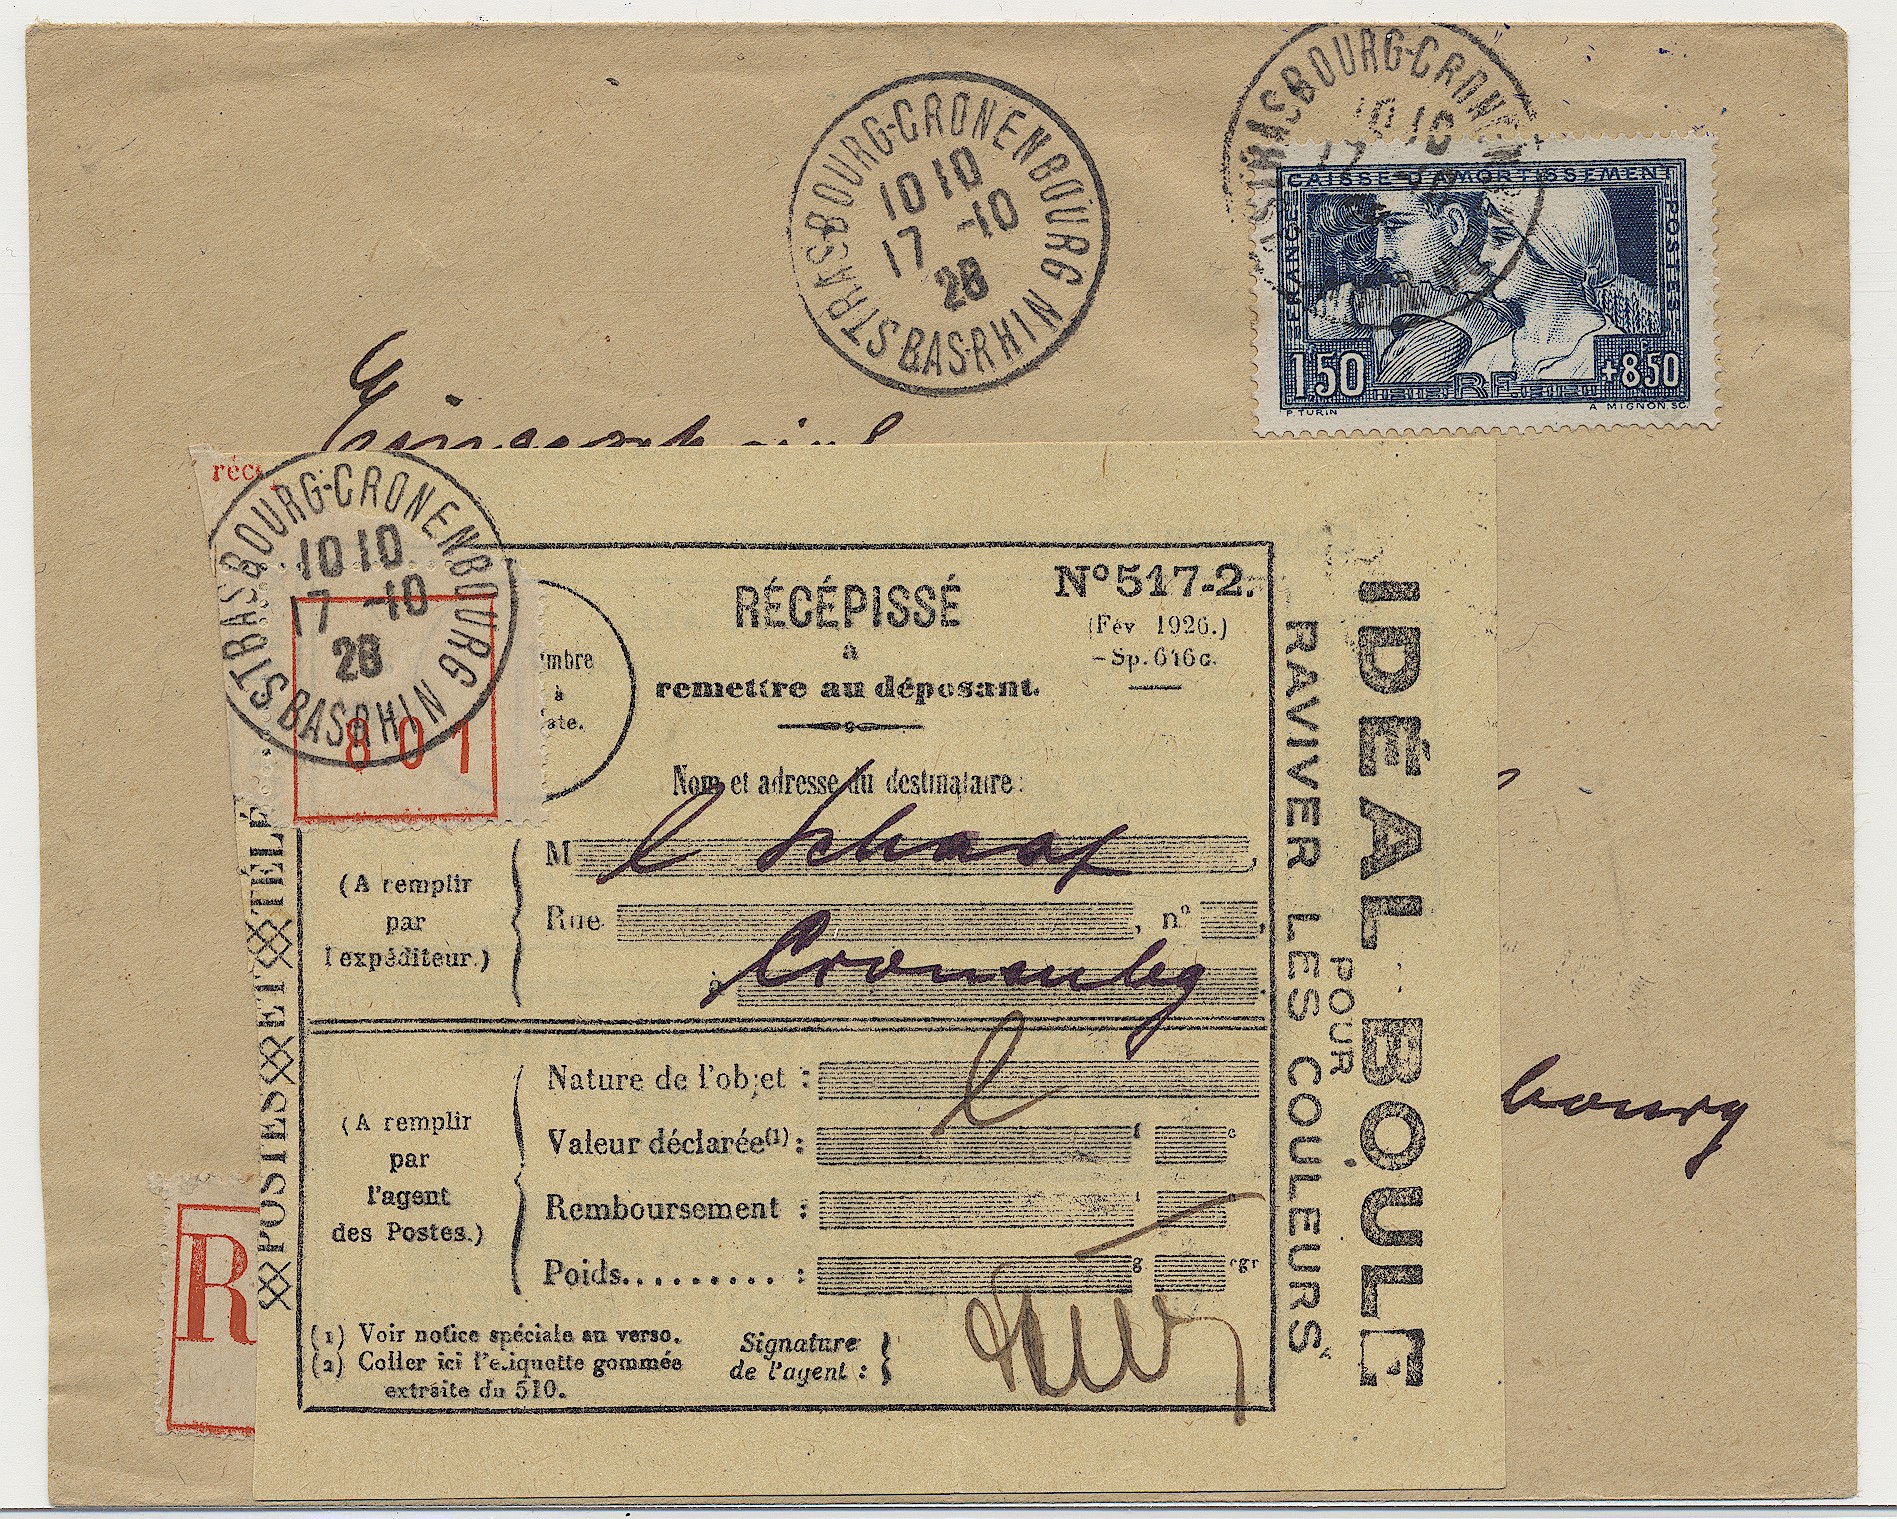 STRASBOURG-CRONENBOURG
1010
17 -10
28
BAS-RHIN
STRASBOURG-CRONEN
1010
17 -10
CAISSE D'AMORTISSEMENT
FRANCE
POSTES
1.50
RF
+8.50
P. TURIN
A. MIGNON. SC.
Eingeschrieb
réc
STRASBOURG-CRONENBOURG
1010
17 -10
28
BAS-RHIN
801
RÉCÉPISSÉ
à
remettre au déposant.
N° 517-2.
(Fév 1926.)
-Sp. 616 c.
mbre
à
ate.
Nom et adresse du destinataire:
(A remplir
par
l'expéditeur.)
M l Schaaf,
Rue , n° ,
à Cronenbg.
(A remplir
par
l'agent
des Postes.)
Nature de l'objet : l
Valeur déclarée(1): f c
Remboursement :
Poids......... : g cgr
(1) Voir notice spéciale au verso.
(2) Coller ici l'etiquette gommée
extraite du 510.
Signature
de l'agent :
POSTES ET TÉLÉ
IDÉAL BOULE
POUR
RAVIVER LES COULEURS
bourg
R